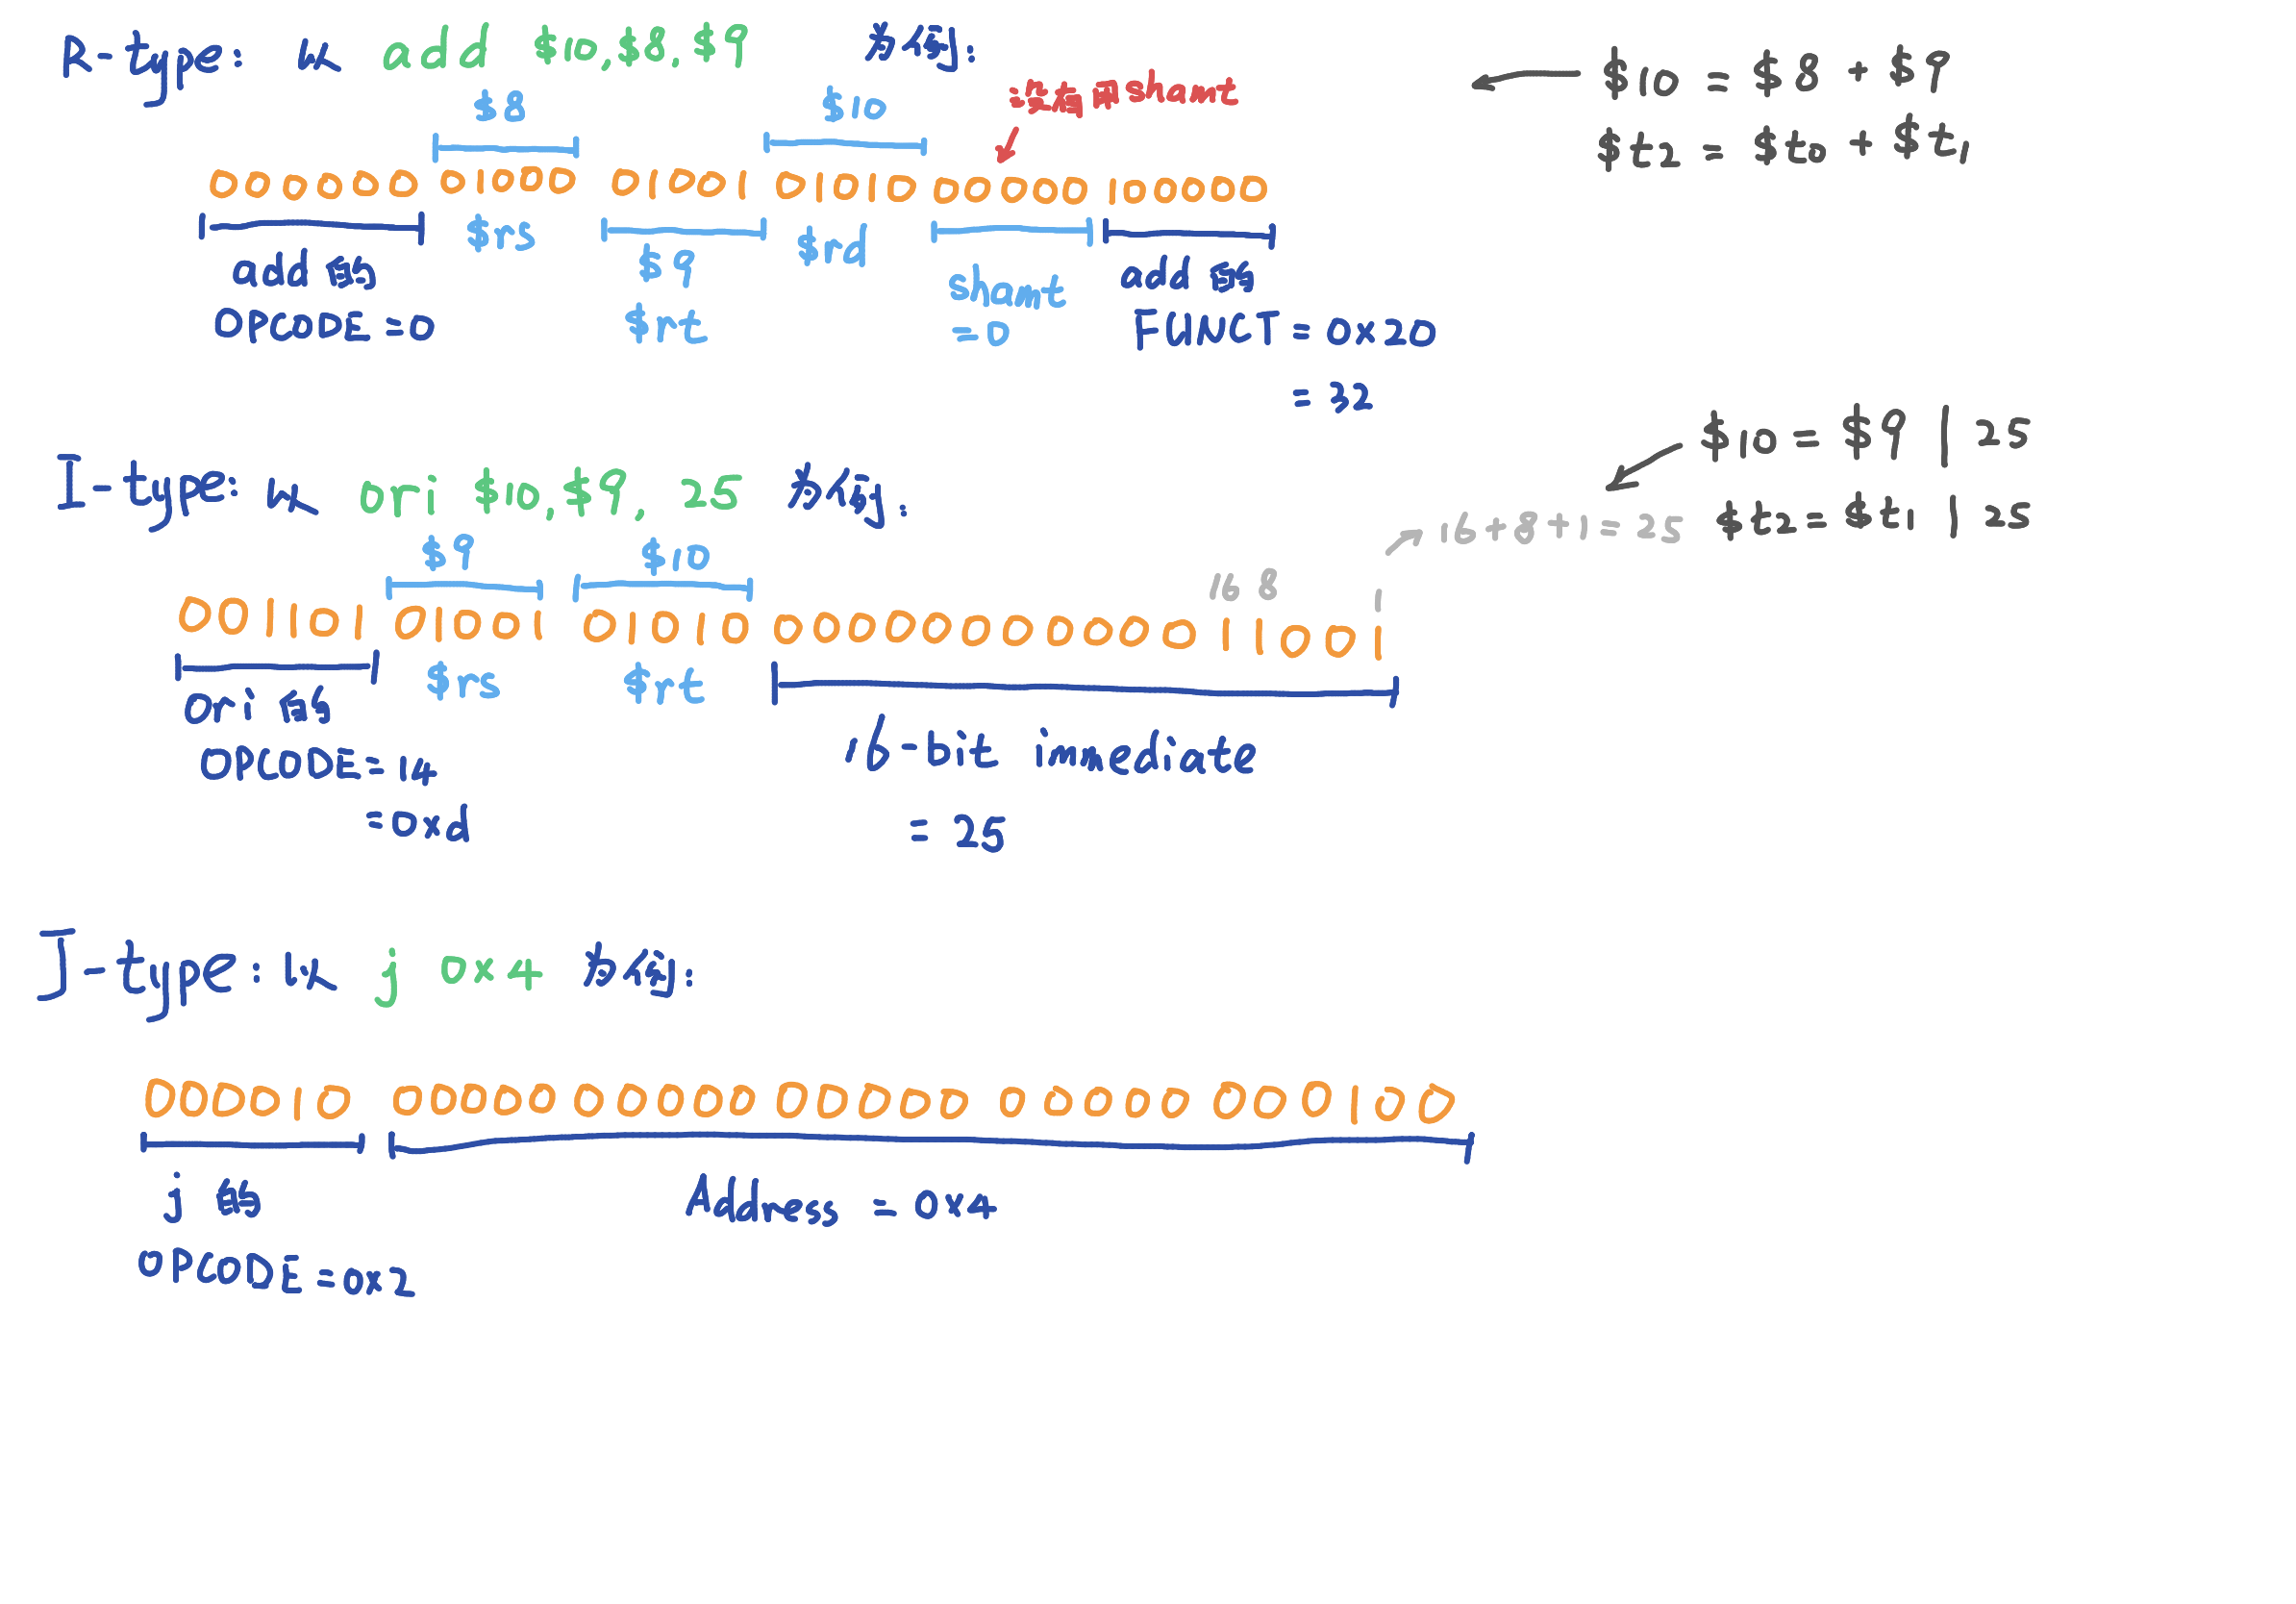 R-type: 以 add $10,$8,$9 為例:
$10 = $8 + $9
$t2 = $t0 + $t1
沒有用shamt
$8
$10
000000 01000 01001 01010 00000 100000
$rs
$rd
add 的
OPCODE=0
$9
$rt
shamt
=0
add 的
FUNCT = 0x20
= 32
I-type: 以 ori $10,$9, 25 為例:
$10 = $9 | 25
$t2 = $t1 | 25
16+8+1=25
$9
$10
16 8 1
001101 01001 01010 0000000000011001
$rs
$rt
ori 的
OPCODE=14
=0xd
16-bit immediate
= 25
J-type: 以 j 0x4 為例:
000010 00000 00000 00000 00000 000100
j 的
OPCODE=0x2
Address = 0x4